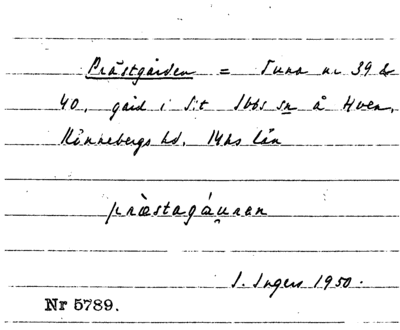 Prästgården = Tuna nr 39 &
40, gård i S:t Ibbs sn å Hven,
Rönnebergs hd, Mhs län
præstagáu̯ren
I. Ingers 1950.
Nr 5789.